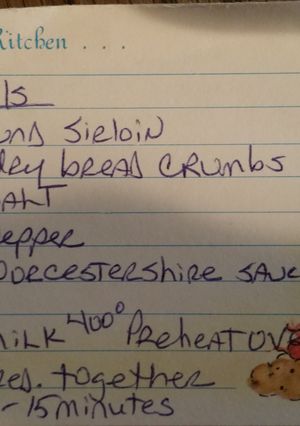 Kitchen . . .
ls
und Sirloin
dry bread crumbs
salt
epper
orcestershire sauc
milk 400° Preheat ove
res. together
- 15 minutes